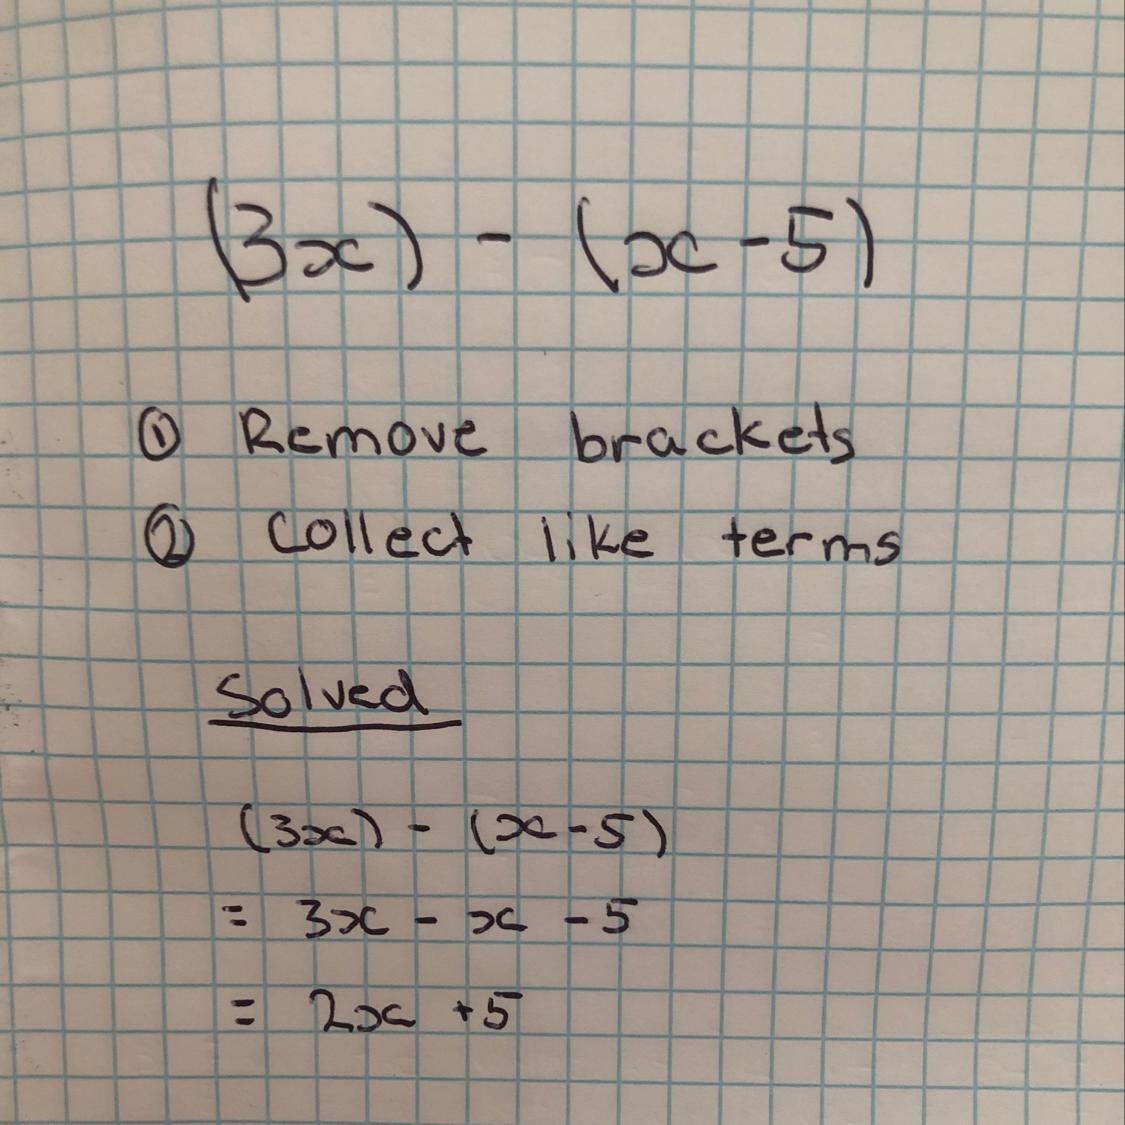 (3x) - (x - 5)
① Remove brackets
② collect like terms
Solved
(3x) - (x - 5)
= 3x - x - 5
= 2x + 5